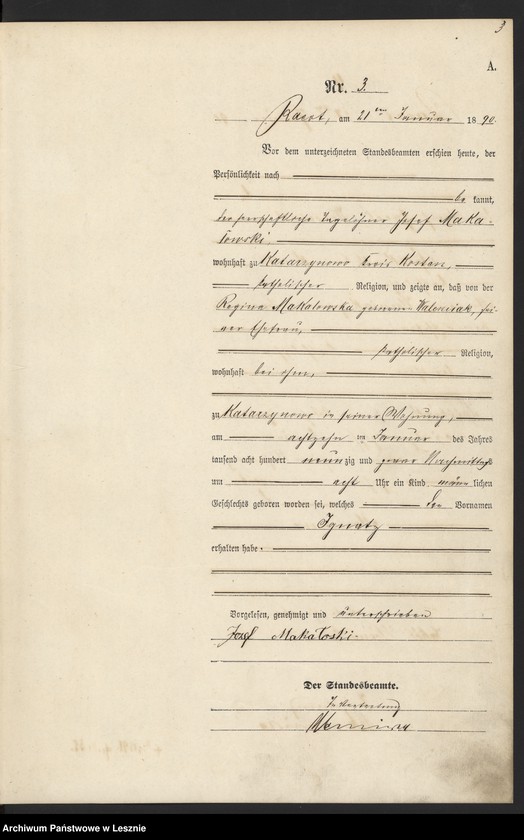 3
A.
Nr. 3.
am 21ten Januar 1890.
Vor dem unterzeichneten Standesbeamten erschien heute, der
Persönlichkeit nach
be kannt,
der herrschaftliche Tagelöhner Josef Maka-
lowski
wohnhaft zu Katarzynowo Kreis Kosten,
katholischer Religion, und zeigte an, daß von der
Regina Makalowska geborene Walensiak, sei-
ner Ehefrau,
katholischer Religion,
wohnhaft bei ihm,
zu Katarzynowo in seiner Wohnung,
am achtzehn ten Januar des Jahres
tausend acht hundert neunzig und zwar Nachmittags
um acht Uhr ein Kind männlichen
Geschlechts geboren worden sei, welches den Vornamen
Ignatz
erhalten habe.
Vorgelesen, genehmigt und unterschrieben
Josef Makałoski
Der Standesbeamte.
In Vertretung
Archiwum Państwowe w Lesznie